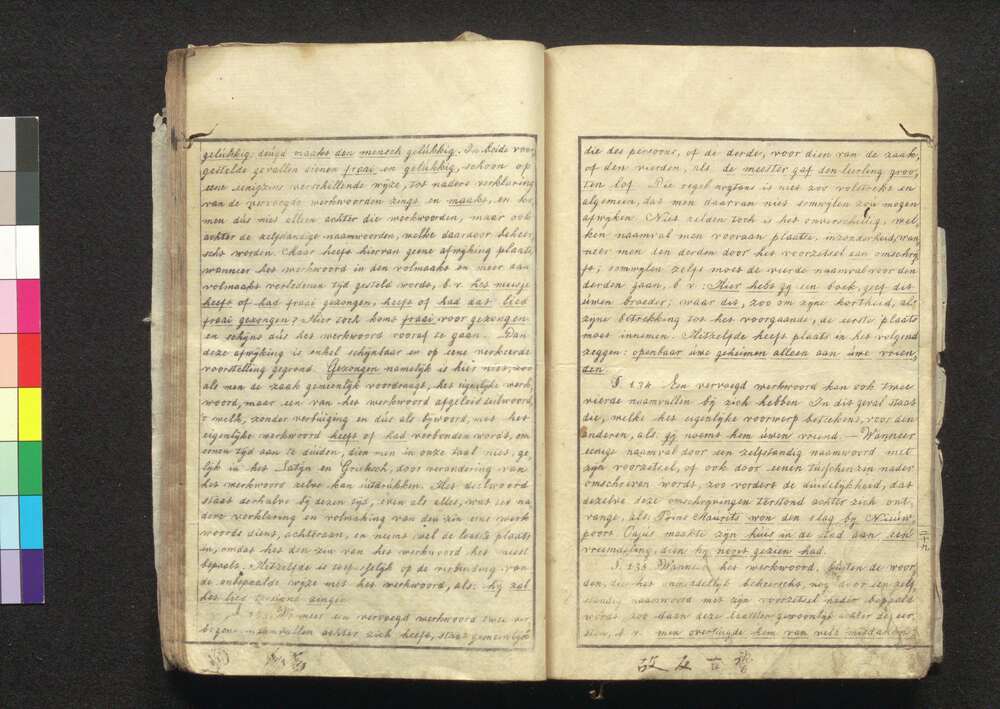 gelukkig: deugd maakt den mensch gelukkig. In beide voor
gestelde gevallen dienen fraai en gelukkig, schoon op
eene eenigzins verschillende wijze, tot nadere verklaring
van de vervoegde werkwoorden zingt en maakt, en ko
men dus niet alleen achter die werkwoorden, maar ook
achter de zelfstandige naamwoorden, welke daardoor beheer
scht worden. Maar heeft hiervan geene afwijking plaats
wanneer het werkwoord in den volmaakt en meer dan
volmaakt verledenen tijd gesteld wordt, b. v. het meisje
heeft of had fraai gezongen, heeft of had dat lied
fraai gezongen? Hier toch komt fraai voor gezongen
en schijnt dus het werkwoord vooraf te gaan. Dan
deze afwijking is enkel schijnbaar en op eene verkeerde
voorstelling gegrond. Gezongen namelijk is hier niet, zoo
als men de zaak gemeenlijk voordraagt, het eigenlijke werk
woord, maar een van het werkwoord afgeleid deelwoord,
't welk, zonder verbuiging en dus als bijwoord, met het
eigenlijke werkwoord heeft of had verbonden wordt, om
eenen tijd aan te duiden, dien men in onze taal niet, ge
lijk in het Latijn en Grieksch, door verandering van
het werkwoord zelve kan uitdrukken. Het deelwoord
staat derhalve bij dezen tijd, even als alles, wat ter na
dere verklaring en volmaking van den zin eens werk
woords dient, achteraan, en neemt wel de laatste plaats
in, omdat het den zin van het werkwoord het meest
bepaalt. Hetzelfde is toepasselijk op de verbinding van
de onbepaalde wijze met het werkwoord, als: hij zal
het lied zingen
Wanneer een vervoegd werkwoord twee ver
bogene naamvallen achter zich heeft, staat gemeenlijk
die des persoons, of de derde, voor dien van de zaak,
of den vierden, als de meester gaf den leerling groo
ten lof. Die regel nogtans is niet zoo volstrekt en
algemeen, dat men daarvan niet somwijlen zou mogen
afwijken. Niet zelden toch is het onverschillig, wel
ken naamval men vooraan plaatse, inzonderheid, wan
neer men den derden door het voorzetsel aan omschrij
ft; somwijlen zelfs moet de vierde naamval voor den
derden gaan, b. v: Hier hebt gij een boek, geef dit
uwen broeder; waar dit, zoo om zijne kortheid, als
zijne betrekking tot het voorgaande, de eerste plaats
moet innemen. Hetzelfde heeft plaats in het volgend
zeggen: openbaar uwe geheimen alleen aan uwe vrien
den.
§. 134. Een vervoegd werkwoord kan ook twee
vierde naamvallen bij zich hebben. In dit geval staat
die, welke het eigenlijke voorwerp beteekent, voor den
anderen, als. gij noemt hem uwen vriend. — Wanneer
eenige naamval door een zelfstandig naamwoord met
zijn voorzetsel, of ook door eenen tusschenzin nader
omschreven wordt, zoo vordert de duidelijkheid, dat
dezelve deze omschrijvingen terstond achter zich ont
vange, als. Prins Maurits won den slag bij Nieuw
poort. Cajus maakte zijn huis in de stad aan een
vreemdeling, dien hij nooit gezien had.
§. 135. Wanneer het werkwoord, buiten de woor
den, die het onmiddellijk beheerscht, nog door een zelf
standig naamwoord met zijn voorzetsel nader bepaald
wordt, zoo staan deze laatste gewoonlijk achter de eer
sten, b. v. men overtuigde hem van vele misdaden